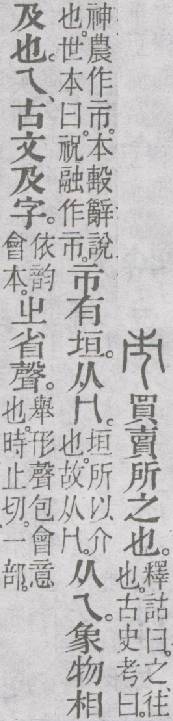 買賣所之也。釋詁曰。之、往也。古史考曰。
神農作市。本毄辭說也。世本曰。祝融作市。市有垣。从冂。垣所以介也。故从冂。从乁。象物相
及也。乁、古文及字。依韵會本。㞢省聲。舉形聲包會意也。時止切。一部。